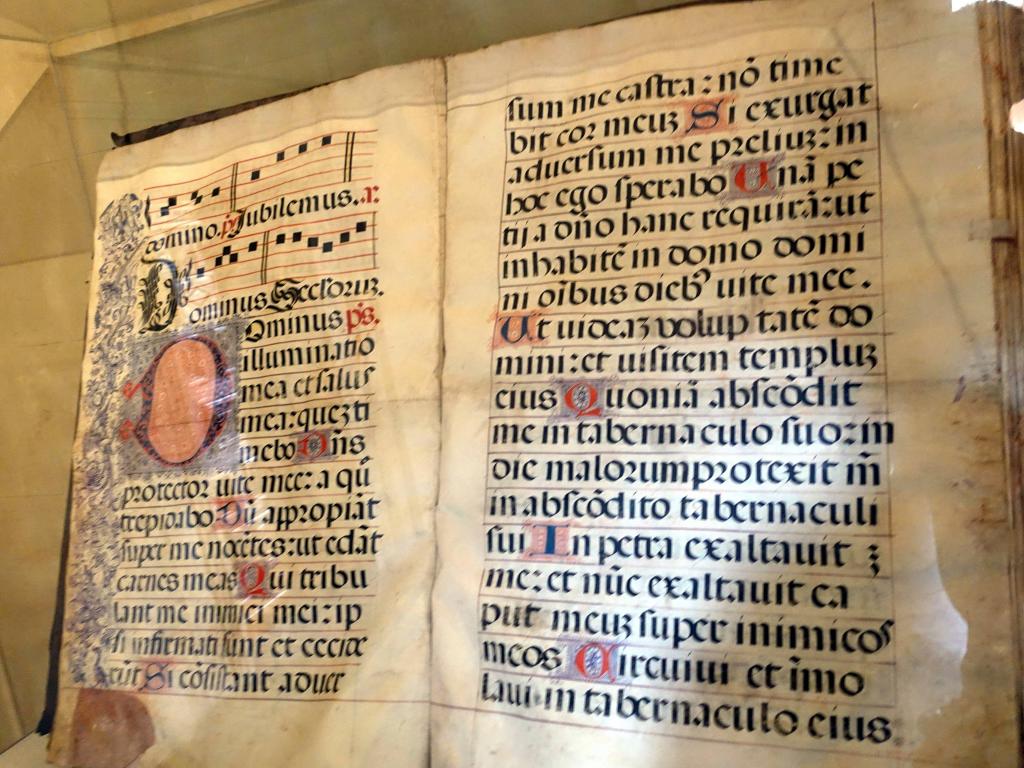 domino. ps Jubilemus. a:
Dominus Secloruz.
Dominus ps.
illuminatio
mea et salus
mea: quez ti
mebo Dn̄s
protector uite mee: a qū
trepidabo Dū appropiāt
super me nocētes: ut edāt
carnes meas Qui tribu
lant me inimici mei: ip
si infirmati sunt et cecide
rūt Si cōsistant aduer
sum me castra: nō time
bit cor meuz Si exurgat
aduersum me preliuz: in
hoc ego sperabo Unā pe
tij a dn̄o hanc requirā: ut
inhabitē in domo domi
ni oībus dieb9 uite mee.
Ut uideaz volup tatē do
mini: et uisitem templuz
eius Quoniā abscōdit
me in tabernaculo suo: in
die malorum protexit m̄
in abscōdito tabernaculi
sui In petra exaltauit
me: et nūc exaltauit ca
put meuz super inimicos
meos Circuiui et īmo
laui in tabernaculo eius